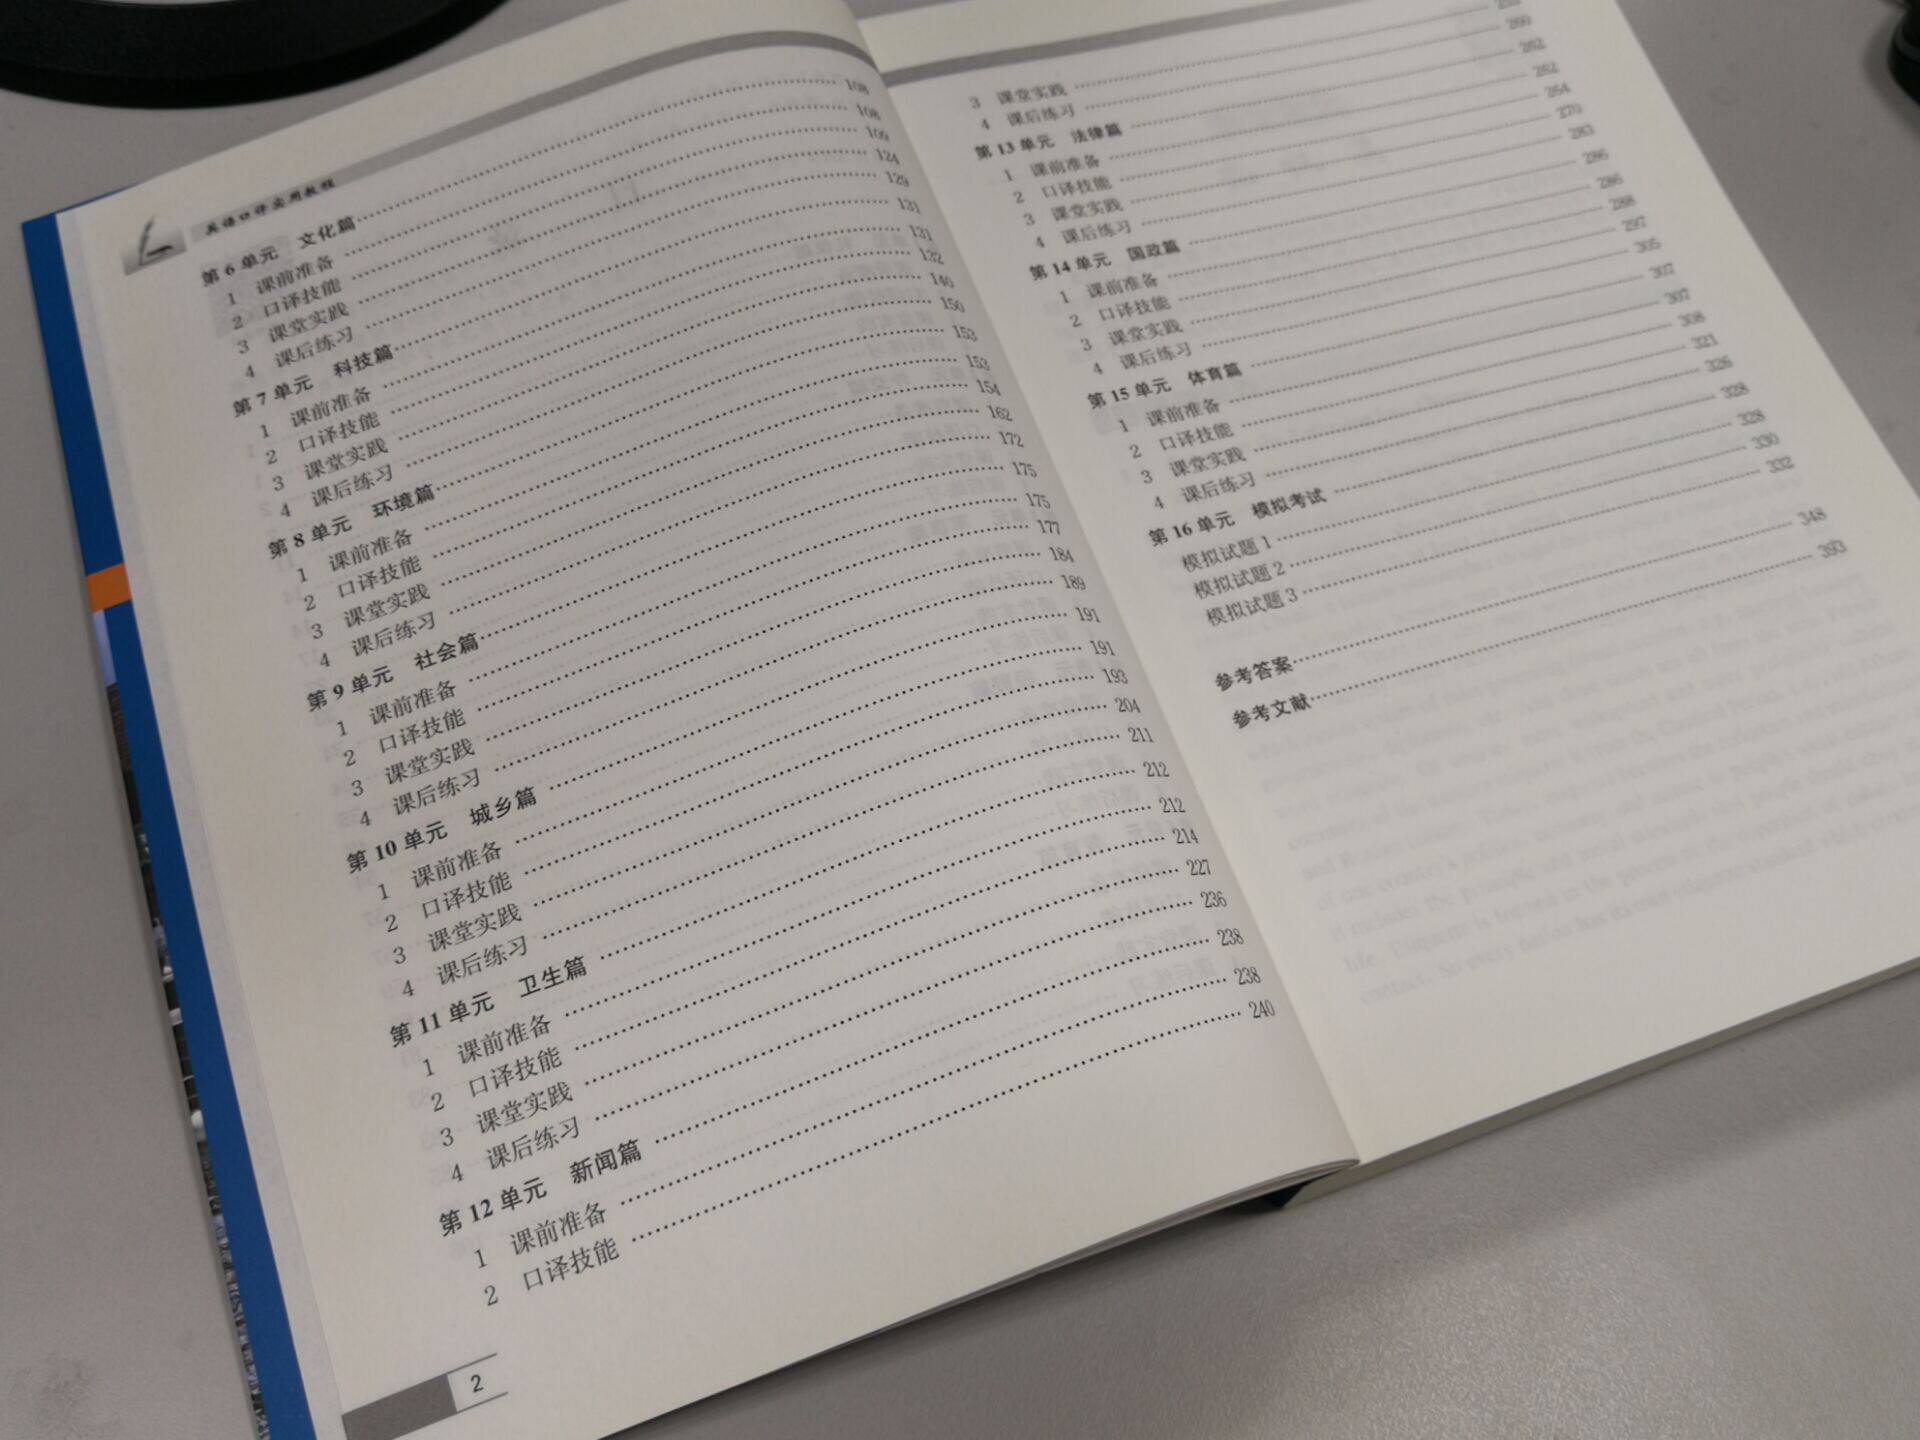 英语口译实用教程
第6单元 文化篇 108
1 课前准备 108
2 口译技能 109
3 课堂实践 124
4 课后练习 129
第7单元 科技篇 131
1 课前准备 131
2 口译技能 132
3 课堂实践 140
4 课后练习 150
第8单元 环境篇 153
1 课前准备 153
2 口译技能 154
3 课堂实践 162
4 课后练习 172
第9单元 社会篇 175
1 课前准备 175
2 口译技能 177
3 课堂实践 184
4 课后练习 189
第10单元 城乡篇 191
1 课前准备 191
2 口译技能 193
3 课堂实践 204
4 课后练习 211
第11单元 卫生篇 212
1 课前准备 212
2 口译技能 214
3 课堂实践 227
4 课后练习 236
第12单元 新闻篇 238
1 课前准备 238
2 口译技能 240
2
3 课堂实践
4 课后练习 260
第13单元 法律篇 262
1 课前准备 262
2 口译技能 264
3 课堂实践 270
4 课后练习 283
第14单元 国政篇 286
1 课前准备 286
2 口译技能 288
3 课堂实践 297
4 课后练习 305
第15单元 体育篇 307
1 课前准备 307
2 口译技能 308
3 课堂实践 321
4 课后练习 326
第16单元 模拟考试 328
模拟试题1 328
模拟试题2 330
模拟试题3 332
参考答案 348
参考文献 393